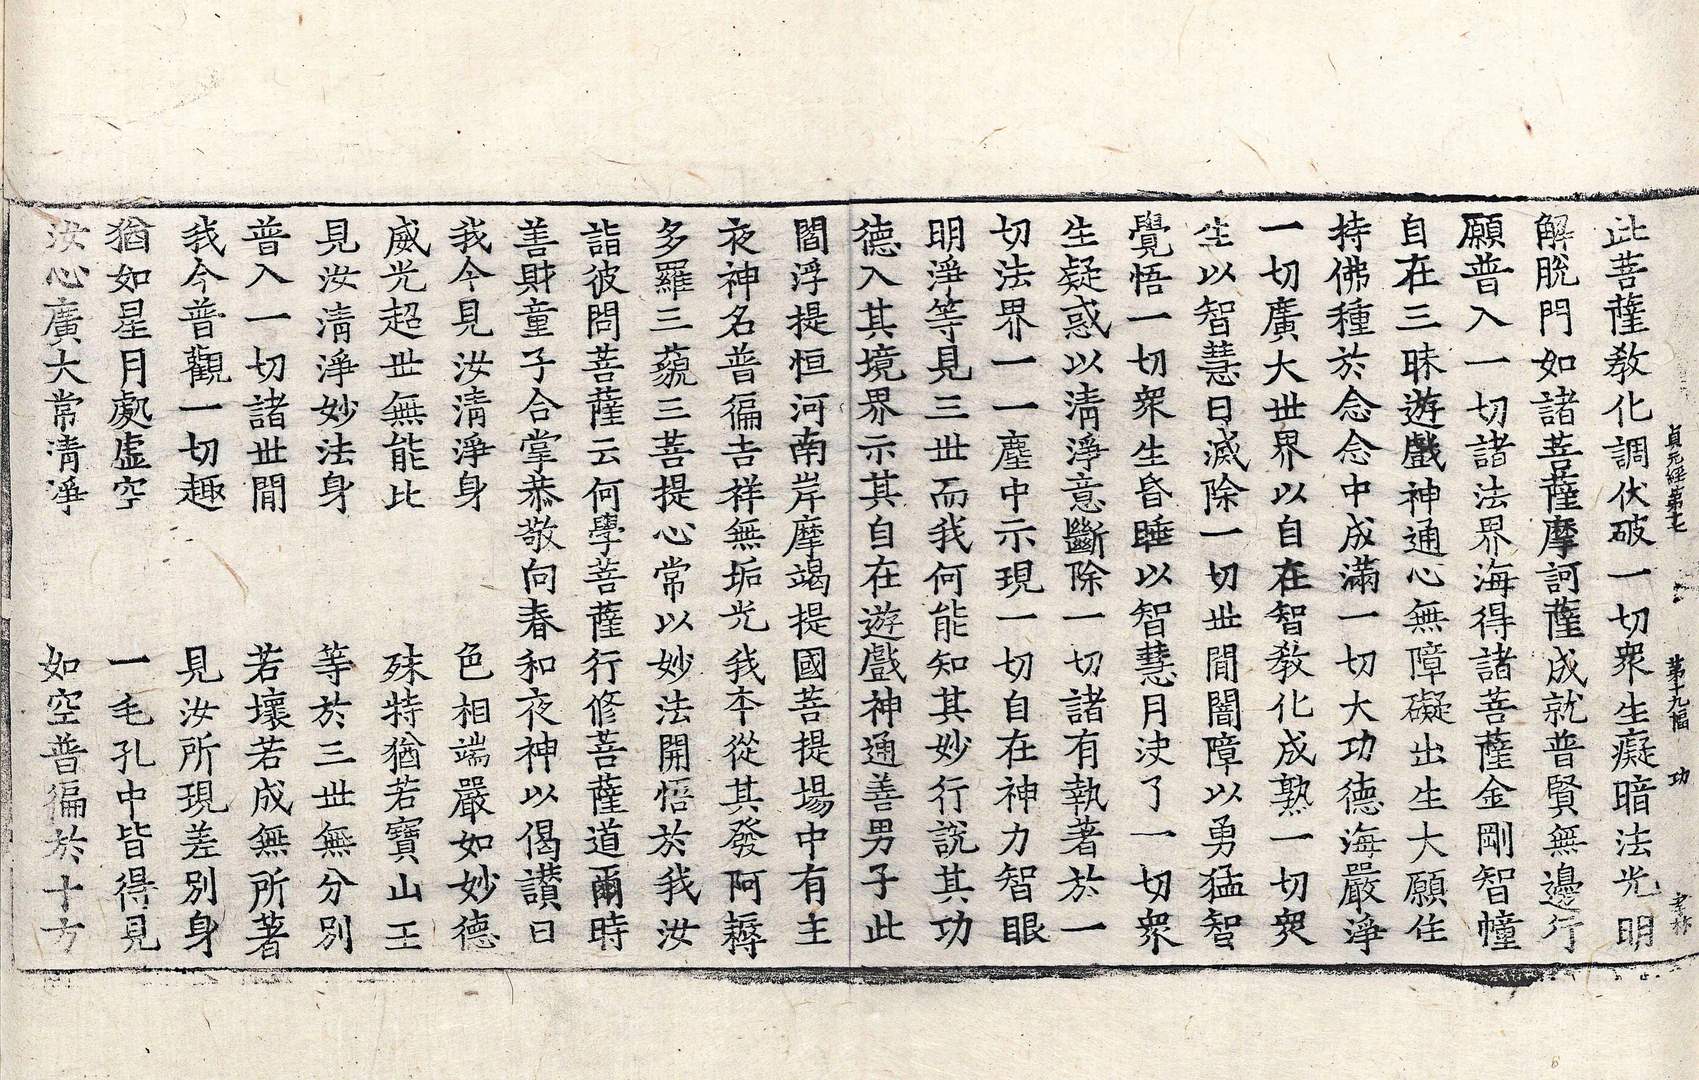 貞元經第十七　第十九幅　功
此菩薩教化調伏破一切眾生癡暗法光明
解脫門如諸菩薩摩訶薩成就普賢無邊行
願普入一切諸法界海得諸菩薩金剛智幢
自在三昧遊戲神通心無障礙出生大願住
持佛種於念念中成滿一切大功德海嚴淨
一切廣大世界以自在智教化成熟一切眾
生以智慧日滅除一切世間闇障以勇猛智
覺悟一切眾生昏睡以智慧月决了一切眾
生疑惑以清淨意斷除一切諸有執著於一
切法界一一塵中示現一切自在神力智眼
明淨等見三世而我何能知其妙行說其功
德入其境界示其自在遊戲神通善男子此
閻浮提恒河南岸摩竭提國菩提場中有主
夜神名普徧吉祥無垢光我本從其發阿耨
多羅三藐三菩提心常以妙法開悟於我汝
詣彼問菩薩云何學菩薩行修菩薩道爾時
善財童子合掌恭敬向春和夜神以偈讚曰
我今見汝清淨身　色相端嚴如妙德
威光超世無能比　殊特猶若寶山王
見汝清淨妙法身　等於三世無分別
普入一切諸世間　若壞若成無所著
我今普觀一切趣　見汝所現差別身
猶如星月處虛空　一毛孔中皆得見
汝心廣大常清淨　如空普徧於十方